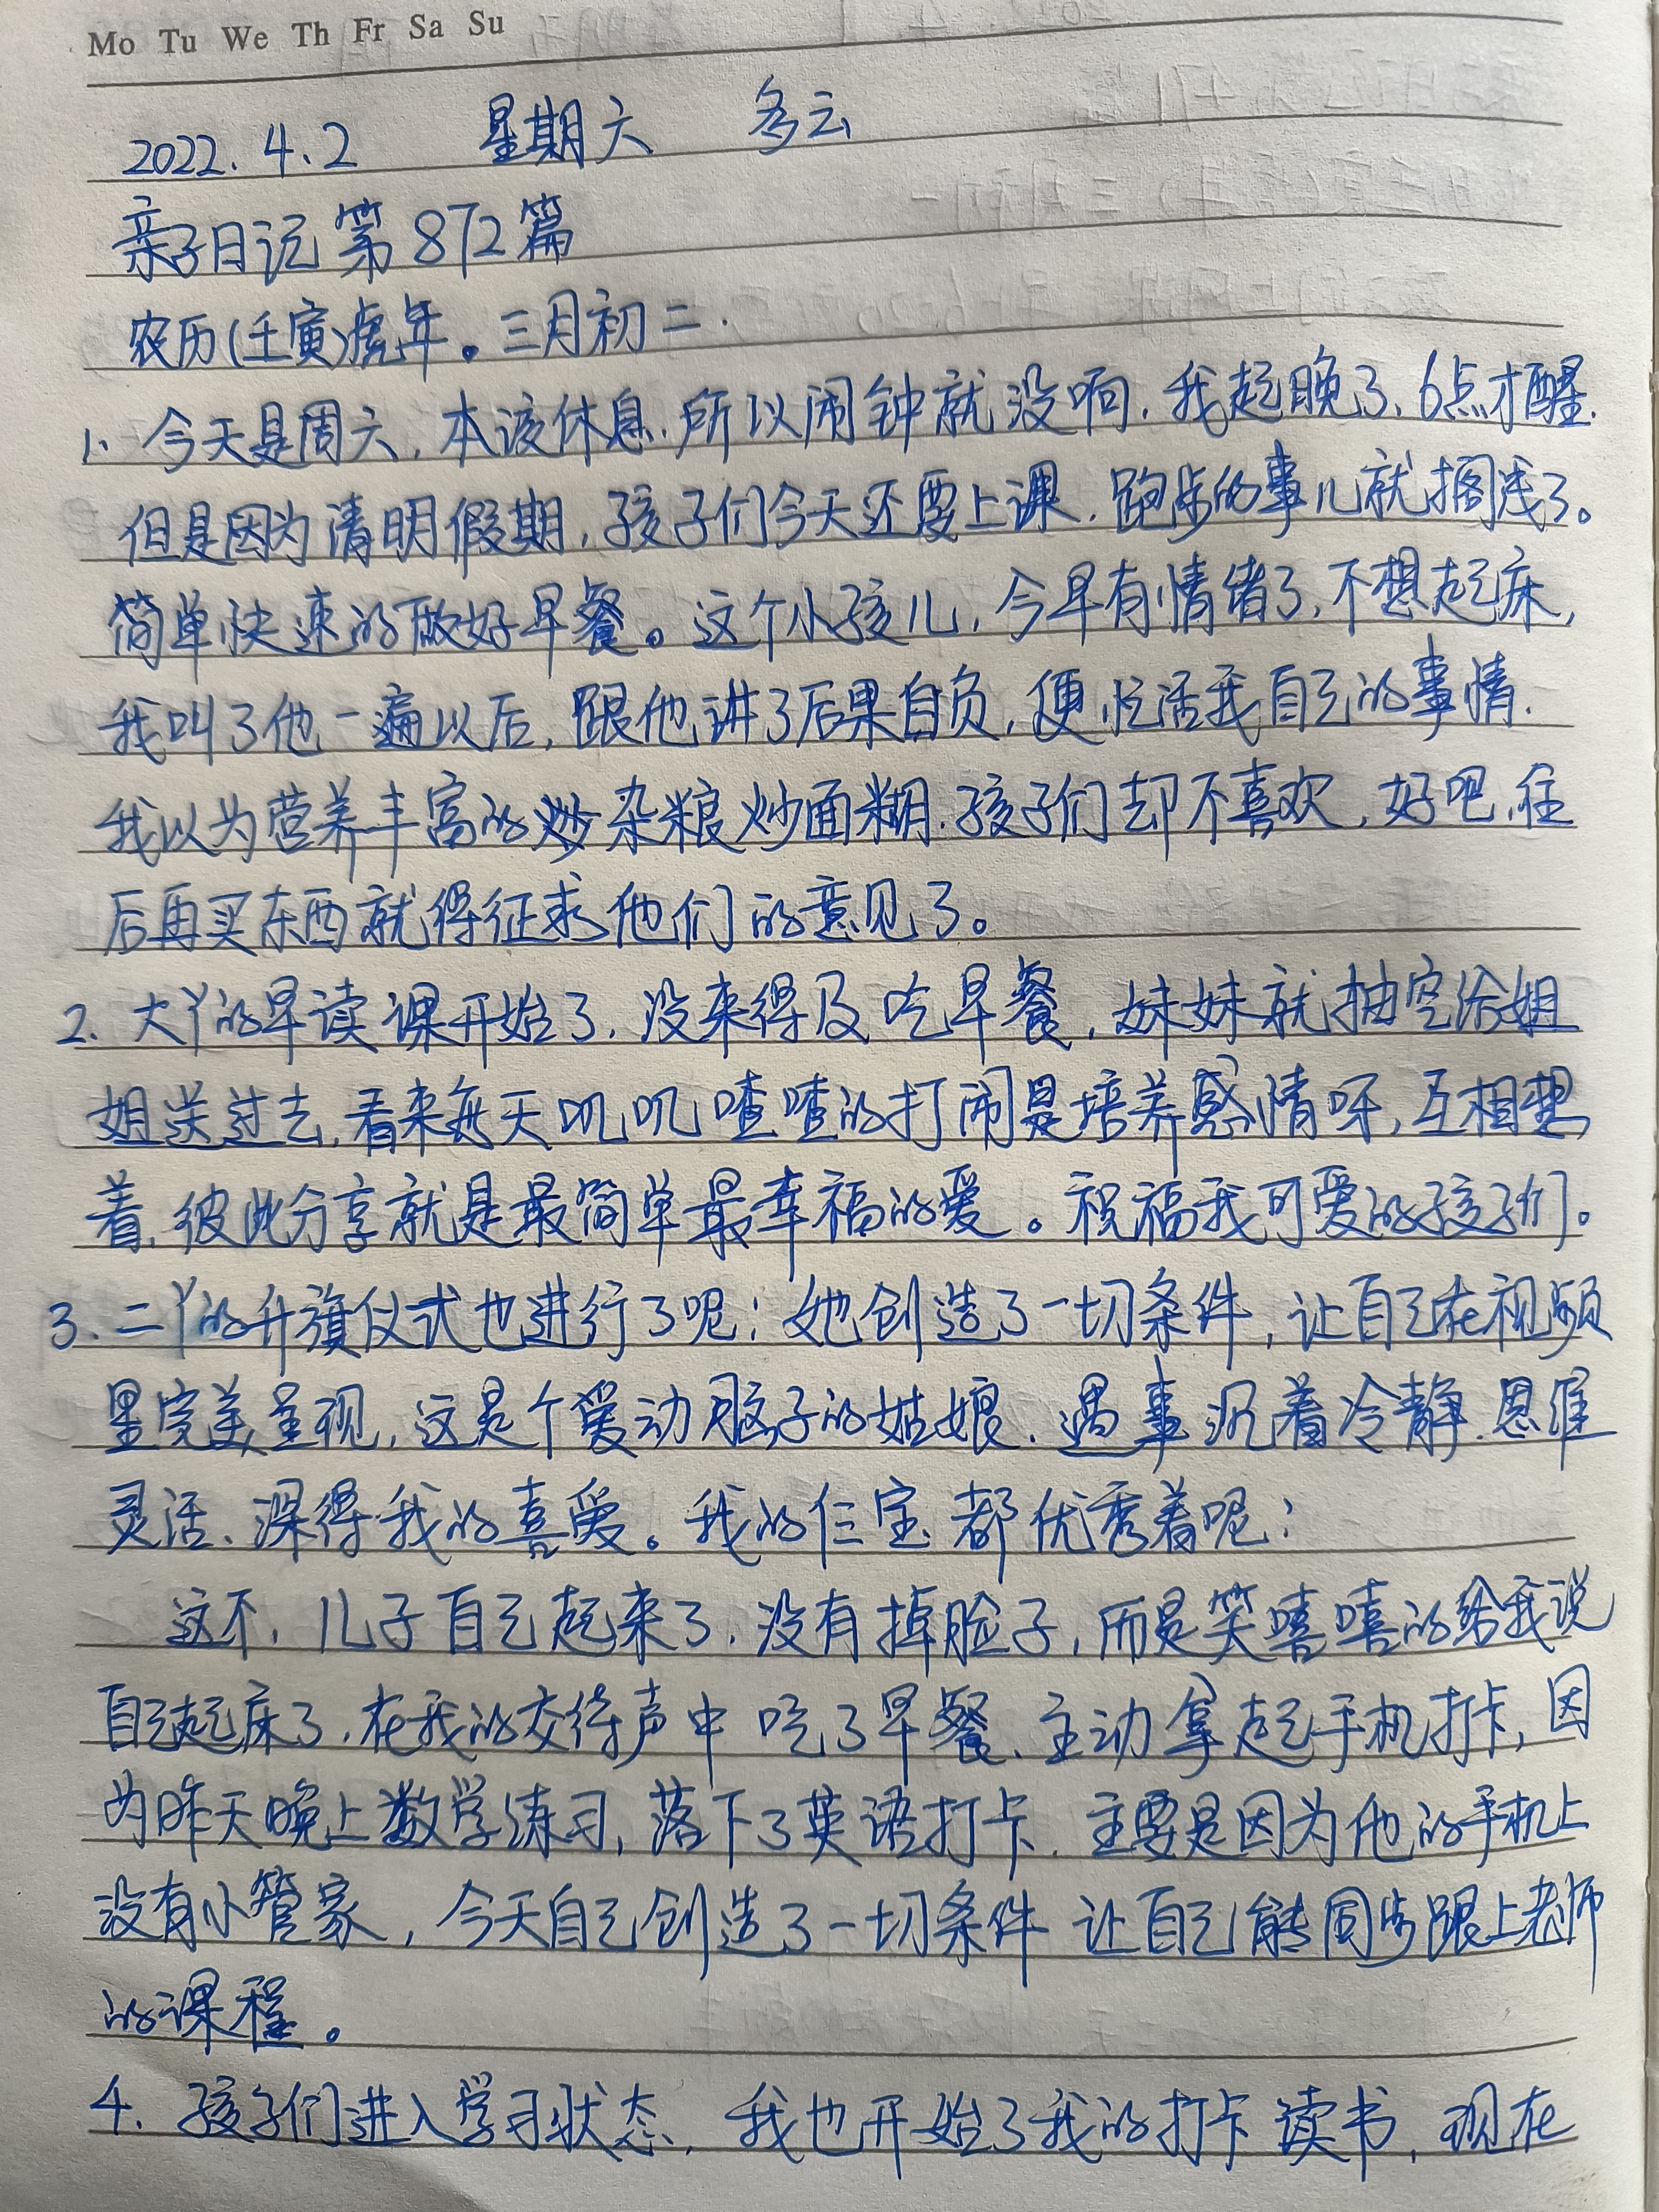 Mo Tu We Th Fr Sa Su
2022.4.2 星期六 多云
亲子日记 第872篇
农历(壬寅)虎年。三月初二.
1、今天是周六,本该休息.所以闹钟就没响.我起晚了、6点才醒.
但是因为清明假期,孩子们今天还要上课.跑步的事儿就搁浅了。
简单快速的做好早餐。这个小孩儿,今早有情绪了,不想起床,
我叫了他一遍以后,跟他讲了后果自负,便忙活我自己的事情.
我以为营养丰富的炒杂粮炒面糊.孩子们却不喜欢,好吧,往
后再买东西就得征求他们的意见了。
2、大丫的早读课开始了,没来得及吃早餐,妹妹就抽空给姐
姐送过去,看来每天叽叽喳喳的打闹是培养感情呀,互相想
着,彼此分享就是最简单最幸福的爱。祝福我可爱的孩子们。
3、二丫的升旗仪式也进行了呢!她创造了一切条件,让自己在视频
里完美呈现,这是个爱动脑子的姑娘.遇事沉着冷静.思维
灵活、深得我的喜爱。我的仨宝都优秀着呢!
这不,儿子自己起来了,没有掉脸子,而是笑嘻嘻的给我说
自己起床了,在我的交待声中吃了早餐、主动拿起手机打卡,因
为昨天晚上数学练习,落下了英语打卡.主要是因为他的手机上
没有小管家,今天自己创造了一切条件 让自己能同步跟上老师
的课程。
4、孩子们进入学习状态,我也开始了我的打卡读书,现在